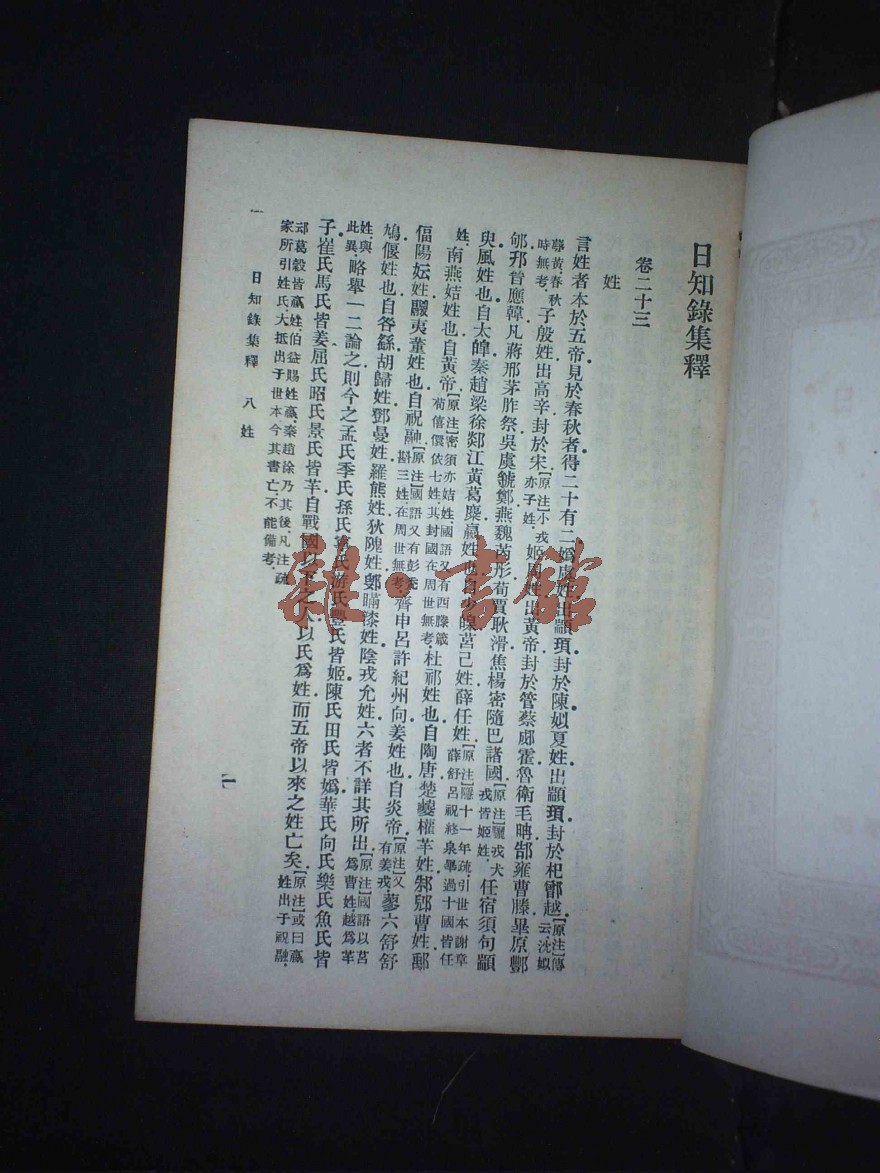 日知錄集釋
卷二十三
姓
言姓者本於五帝見於春秋者得二十有二媯虞姓出顓頊封於陳姒夏姓出顓頊封於杞鄫越【原注】傳云沈姒
蓐黃春秋時無考子殷姓出高辛封於宋【原注】小戎亦子姓姬周姓出黃帝封於管蔡郕霍魯衛毛聃郜雍曹滕畢原酆
郇邘晉應韓凡蔣邢茅胙祭吳虞虢鄭燕魏芮彤荀賈耿滑焦楊密隨巴諸國【原注】驪戎犬戎皆姬姓任宿須句顓
臾風姓也自太皞秦趙梁徐郯江黃葛麋嬴姓也自少皞莒己姓薛任姓【原注】隱十一年疏引世本謝章薛舒呂祝終泉畢過十國皆任
姓南燕姞姓也自黃帝【原注】密須亦姞姓國語又有西滕箴荀僖儇依七姓其封國在周世無考杜祁姓也自陶唐楚夔權羋姓邾郳曹姓鄅
偪陽妘姓鬷夷董姓也自祝融【原注】國語又有彭禿斟三姓在周世無考齊申呂許紀州向姜姓也自炎帝【原注】又有姜戎蓼六舒舒
鳩偃姓也自咎繇胡歸姓鄧曼姓羅熊姓狄隗姓鄋瞞漆姓陰戎允姓六者不詳其所出【原注】國語以莒爲曹姓越爲羋
姓與此異略舉一二論之則今之孟氏季氏孫氏甯氏游氏豐氏皆姬陳氏田氏皆媯華氏向氏樂氏魚氏皆
子崔氏馬氏皆姜屈氏昭氏景氏皆羋自戰國以下之人以氏爲姓而五帝以來之姓亡矣【原注】或曰嬴姓出于祝融
郯葛穀皆嬴姓伯益賜姓嬴秦趙徐乃其後凡注疏家所引姓氏大抵出于世本今其書亡不能備考
日知錄集釋 八 姓
一
雜·書館